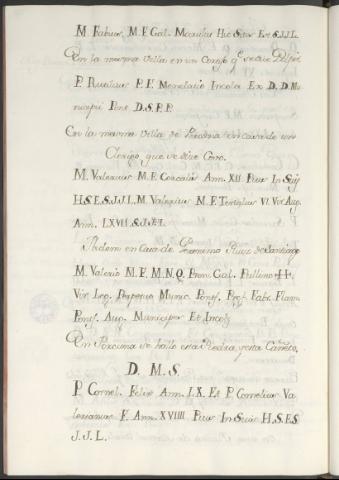 M. Fabius M. F. Gal. Mcaulus Hic Situs Est S.J.J.L.
En la misma Villa en un Cortijo q.e se dice
P. Rutilius P. F. Menelatio Incola Ex D. D. Mu
nicipii Pont. D.S.P.P.
En la misma Villa de Porcuna en casa de un
Clerigo que se dice Coro.
M. Valerius M. F. Ann. XII. Pius In Suis
H.S.E.S.J.J.L. M. Valerius M. F. Tertulius VI. Vir Aug.
Ann. LXVII. S.J.J.L.
Ytidem en Casa de Geronimo Ruiz de Santiago
M. Valerio M. F. M. N. Q. Pron. Gal. Pullino II.
Vir. Leg. Perpetuo Munic. Pontif. Pref. Fabr. Flam.
Pontif. Aug. Municipes Et Incolę
En Porcuna se hallo esta Piedra, y esta
D. M. S.
P. Cornel. Felix Ann. LX. Et P. Cornelius Va
lerianus F. Ann. XVIIII Pius In Suis H.S.E.S
J.J.L.